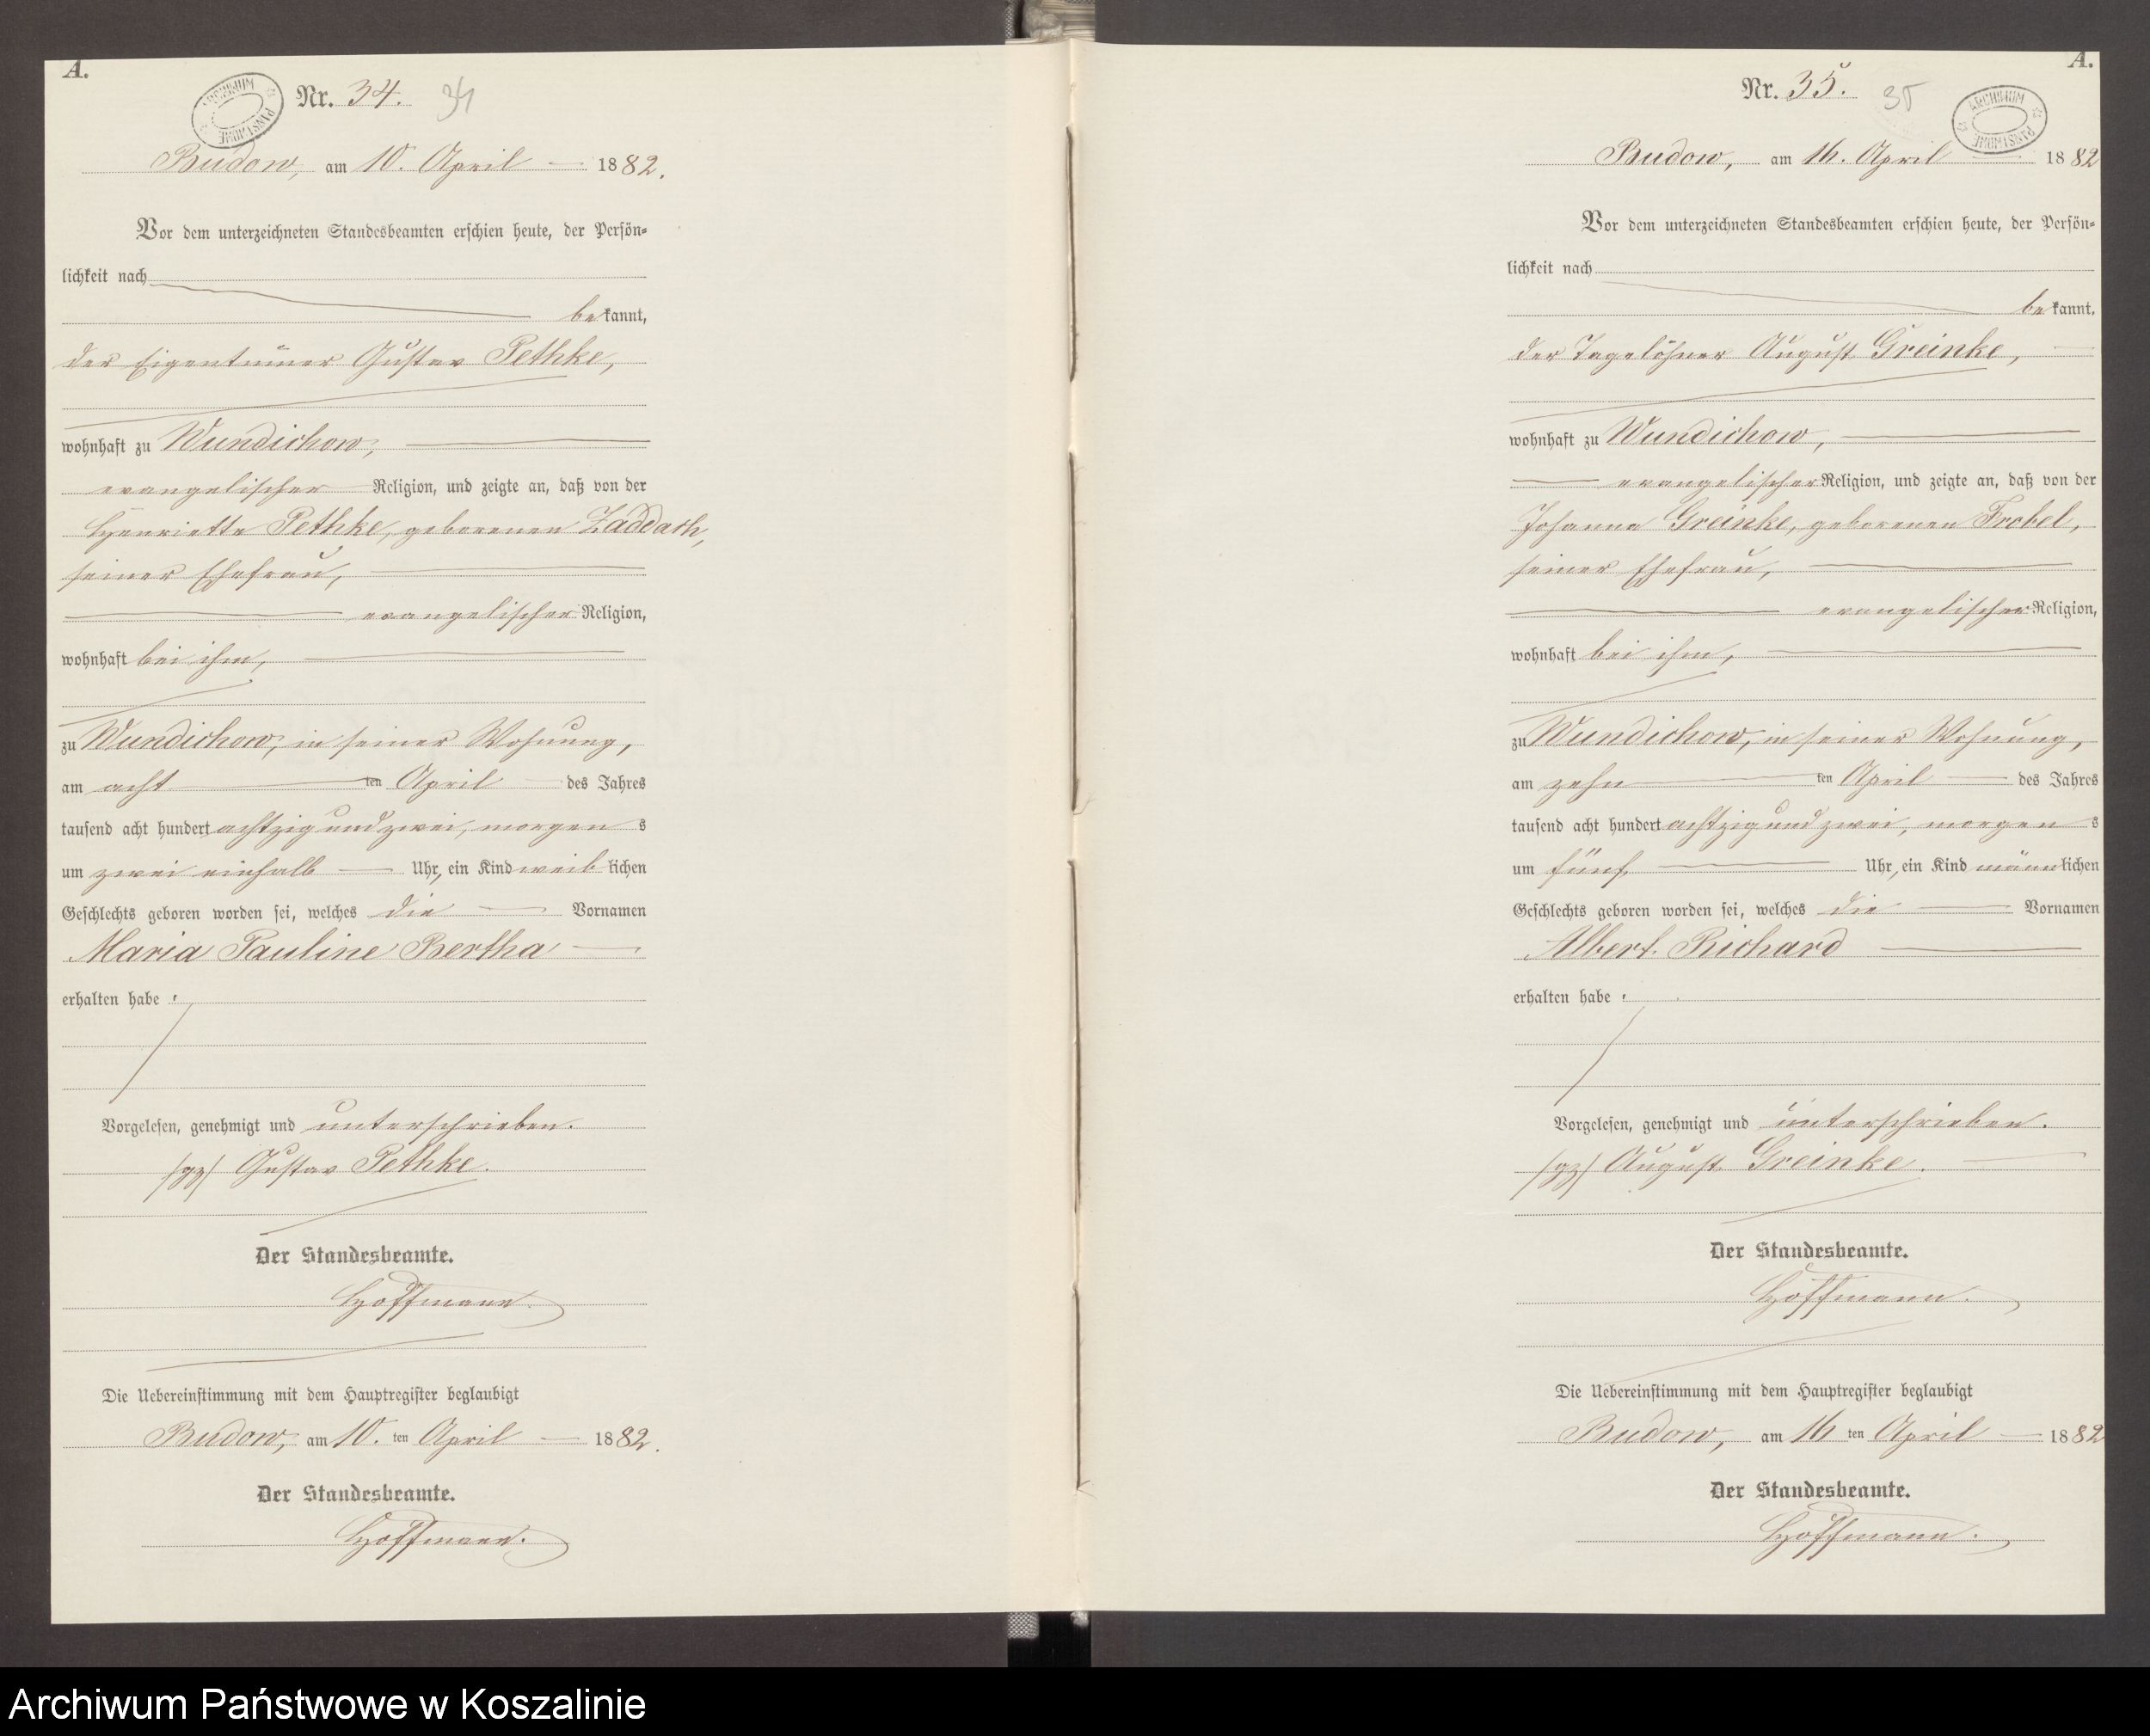 A.
ARCHIWUM PAŃSTWOWE
Nr. 34. 34
Budow, am 10. April 1882.
Vor dem unterzeichneten Standesbeamten erschien heute, der Persön-
lichkeit nach
bekannt,
der Eigentümer Gustav Pethke,
wohnhaft zu Wundichow,
evangelischer Religion, und zeigte an, daß von der
Henriette Pethke, geborenen Zaddach,
seiner Ehefrau,
evangelischer Religion,
wohnhaft bei ihm,
zu Wundichow, in seiner Wohnung,
am acht ten April des Jahres
tausend acht hundert achtzig und zwei, morgens
um zwei einhalb Uhr, ein Kind weiblichen
Geschlechts geboren worden sei, welches die Vornamen
Maria Pauline Bertha
erhalten habe.
Vorgelesen, genehmigt und unterschrieben.
(gz) Gustav Pethke.
Der Standesbeamte.
Hoffmann.
Die Uebereinstimmung mit dem Hauptregister beglaubigt
Budow, am 10. ten April 1882.
Der Standesbeamte.
Hoffmann.
A.
Nr. 35. 35
ARCHIWUM PAŃSTWOWE
Budow, am 16. April 1882
Vor dem unterzeichneten Standesbeamten erschien heute, der Persön-
lichkeit nach
bekannt,
der Tagelöhner August Greinke,
wohnhaft zu Wundichow,
evangelischer Religion, und zeigte an, daß von der
Johanna Greinke, geborenen Frobel,
seiner Ehefrau,
evangelischer Religion,
wohnhaft bei ihm,
zu Wundichow, in seiner Wohnung,
am zehn ten April des Jahres
tausend acht hundert achtzig und zwei, morgens
um fünf Uhr, ein Kind männlichen
Geschlechts geboren worden sei, welches die Vornamen
Albert Richard
erhalten habe.
Vorgelesen, genehmigt und unterschrieben.
(gz) August Greinke.
Der Standesbeamte.
Hoffmann.
Die Uebereinstimmung mit dem Hauptregister beglaubigt
Budow, am 16 ten April 1882
Der Standesbeamte.
Hoffmann.
Archiwum Państwowe w Koszalinie